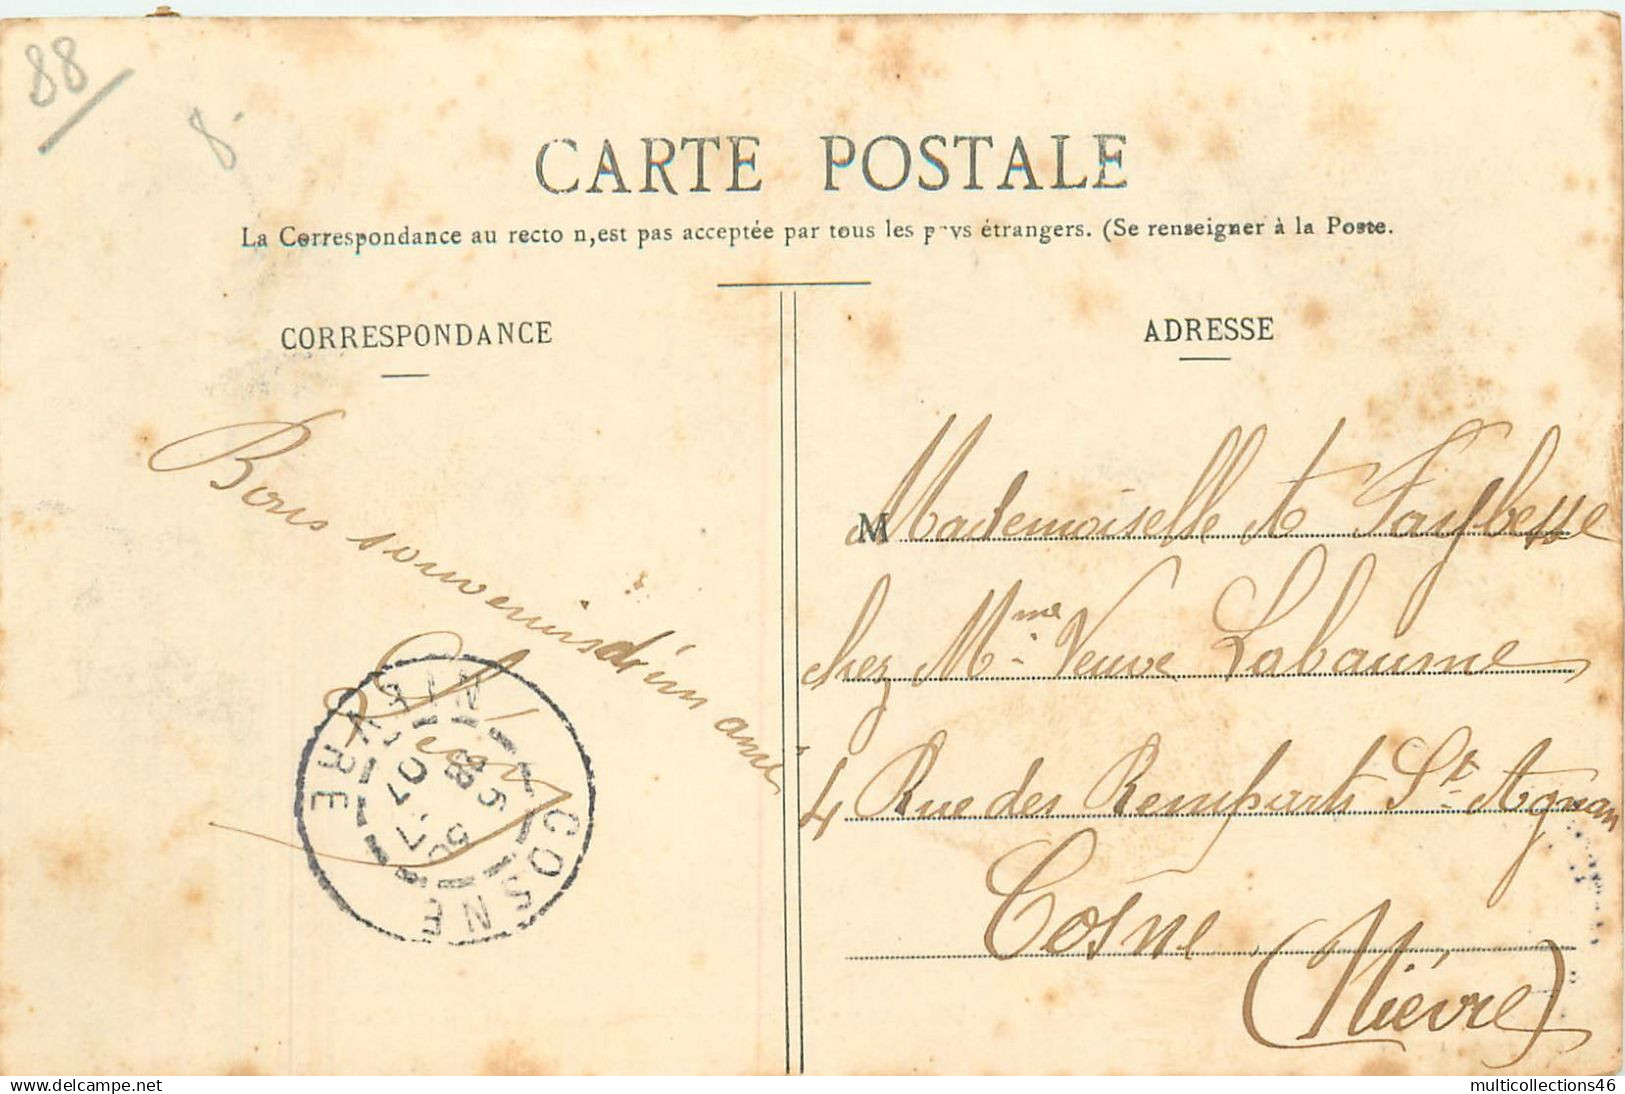 88
8.
CARTE POSTALE
La Correspondance au recto n,est pas acceptée par tous les pays étrangers. (Se renseigner à la Poste.
CORRESPONDANCE
ADRESSE
Bons souvenirs d'un ami
COSNE
NIÈVRE
M Mademoiselle A
chez Mme Veuve Labaume
4 Rue des Remparts St Agnan
Cosne
(Nièvre)
delcampe.net
multicollections46